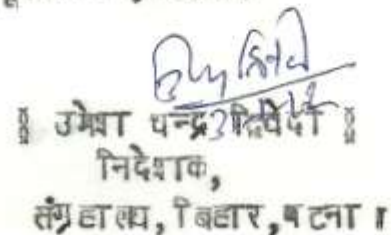 उमेश चन्द्र द्विवेदी
निदेशक,
संग्रहालय, बिहार, पटना ।